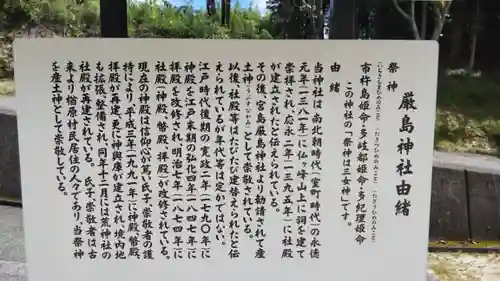 厳島神社由緒
祭神
(いちきしまひめのみこと)(たぎりひめのみこと)(たぎつひめのみこと)
市杵島姫命・多岐都姫命・多紀理姫命
この神社の「祭神は三女神」です。
由緒
当神社は、南北朝時代(室町時代)の永徳
元年(一三八一年)に仏ヶ峰山上に祠を建て
崇拝され、応永二年(一三九五年)に社殿
が建立されたと伝えられている。
その後、宮島厳島神社より勧請されて産
土神(うぶすながみ)として崇敬されている。
以後、社殿等はたびたび建て替えられたと伝
えられているが年代等は定かではない。
江戸時代後期の寛政二年(一七九〇年)に
神殿を、江戸末期の弘化四年(一八四七年)に
拝殿を改修され、明治七年(一八七四年)に
社殿(神殿、幣殿、拝殿)が改修されている。
現在の神殿は信仰心が篤い氏子、崇敬者の護
持により、平成三年(一九九一年)に神殿、幣殿、
拝殿が再建、更に神輿庫が建立され、境内地
も拡張、整備され、同年十二月には荒神社の
社殿が再建されている。氏子、崇敬者は古
来より楢原村長居住の人々であり、当祭神
を産土神として崇敬している。